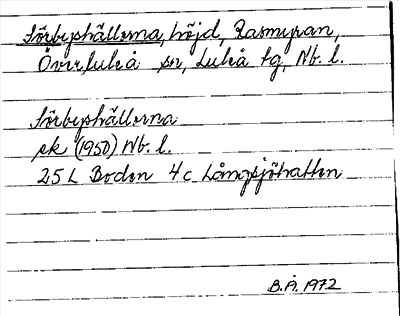 Sörbyhällorna, höjd, Rasmyran,
Överluleå sn, Luleå tg, Nb. l.
Sörbyhällorna
sk (1950) Nb. l.
25 L Boden 4c Långsjöhatten
B.Å. 1972